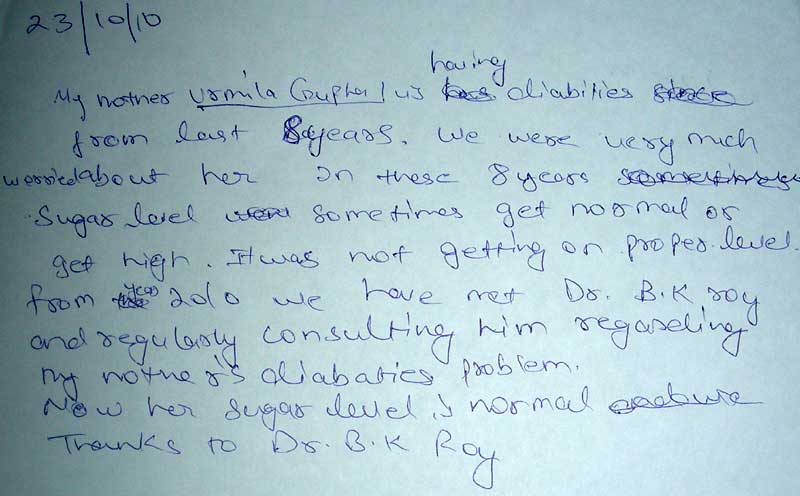 23/10/10
having
My mother Urmila Gupta is diabities
from last 8 years. We were very much
worried about her In these 8 years
Sugar level sometimes get normal or
get high. It was not getting on proper level.
from year 2010 we have met Dr. B.K roy
and regularly consulting him regarding
my mother's diabaties problem.
Now her sugar level is normal
Thanks to Dr. B.K Roy